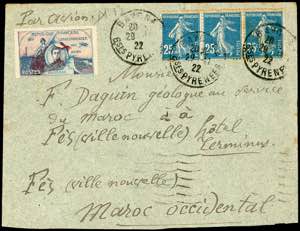 Par avion
REPUBLIQUE FRANCAISE
POSTES
25
25
25
20
29
22
BSES PYRENEES
20
29
22
BSES PYRENEES
Monsieur
F. Daguin géologue au service
du maroc à
Fès (ville nouvelle) hôtel
Terminus
Fès (ville nouvelle)
Maroc occidental